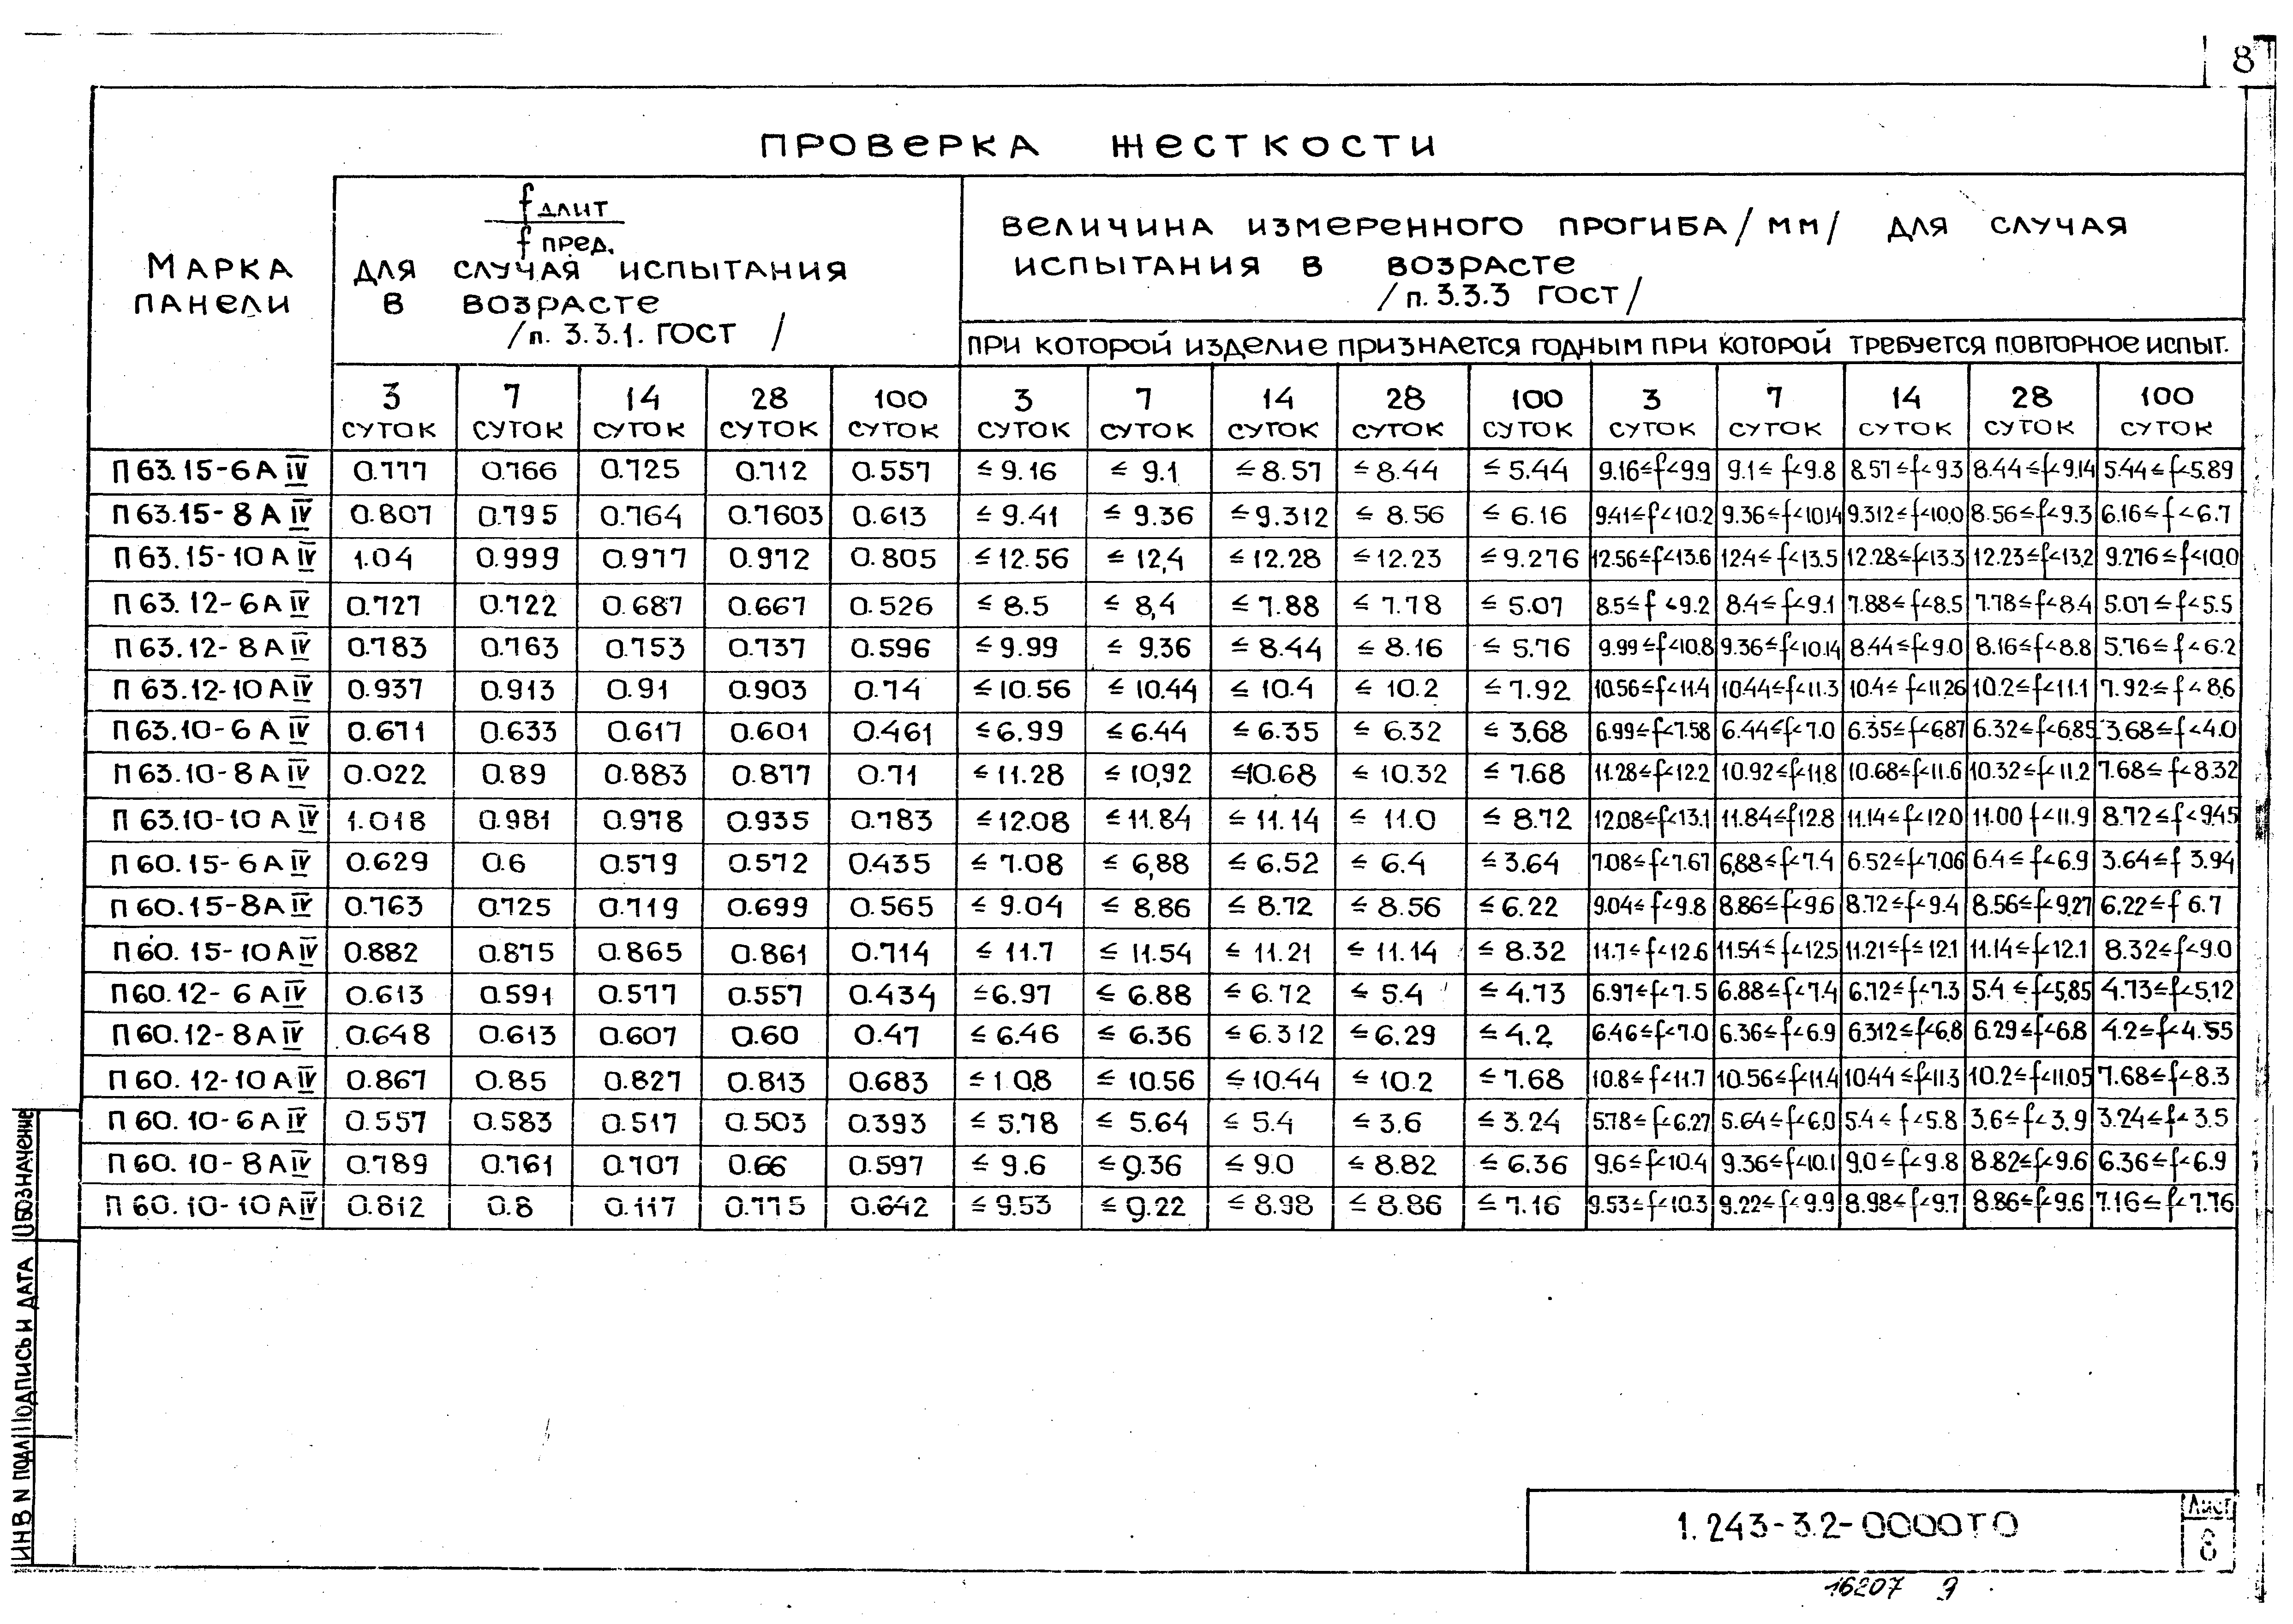 8
ПРОВЕРКА ЖЕСТКОСТИ
МАРКА ПАНЕЛИ
f длит
f пред.
ДЛЯ СЛУЧАЯ ИСПЫТАНИЯ
В ВОЗРАСТЕ
/п. 3.3.1. ГОСТ /
ВЕЛИЧИНА ИЗМЕРЕННОГО ПРОГИБА /ММ/ ДЛЯ СЛУЧАЯ
ИСПЫТАНИЯ В ВОЗРАСТЕ
/п. 3.3.3 ГОСТ/
ПРИ КОТОРОЙ ИЗДЕЛИЕ ПРИЗНАЕТСЯ ГОДНЫМ ПРИ КОТОРОЙ ТРЕБУЕТСЯ ПОВТОРНОЕ ИСПЫТ.
3 7 14 28 100 3 7 14 28 100 3 7 14 28 100
СУТОК СУТОК СУТОК СУТОК СУТОК СУТОК СУТОК СУТОК СУТОК СУТОК СУТОК СУТОК СУТОК СУТОК СУТОК
П 63.15-6 А IV 0.777 0.766 0.725 0.712 0.557 ≤ 9.16 ≤ 9.1 ≤ 8.57 ≤ 8.44 ≤ 5.44 9.16≤f<9.9 9.1≤ f<9.8 8.57≤f<9.3 8.44≤f<9.14 5.44≤ f<5.89
П 63.15-8 А IV 0.807 0.795 0.764 0.7603 0.613 ≤ 9.41 ≤ 9.36 ≤ 9.312 ≤ 8.56 ≤ 6.16 9.41≤f<10.2 9.36≤f<10.14 9.312≤f<10.0 8.56≤f<9.3 6.16≤f<6.7
П 63.15-10 А IV 1.04 0.999 0.977 0.972 0.805 ≤ 12.56 ≤ 12,4 ≤ 12.28 ≤ 12.23 ≤ 9.276 12.56≤f<13.6 12.4≤f<13.5 12.28≤f<13.3 12.23≤f<13.2 9.276≤f<10.0
П 63.12-6 А IV 0.727 0.722 0.687 0.667 0.526 ≤ 8.5 ≤ 8,4 ≤ 7.88 ≤ 7.78 ≤ 5.07 8.5≤f<9.2 8.4≤f<9.1 7.88≤f<8.5 7.78≤f<8.4 5.07≤f<5.5
П 63.12-8 А IV 0.783 0.763 0.753 0.737 0.596 ≤ 9.99 ≤ 9.36 ≤ 8.44 ≤ 8.16 ≤ 5.76 9.99≤f<10.8 9.36≤f<10.14 8.44≤f<9.0 8.16≤f<8.8 5.76≤f<6.2
П 63.12-10 А IV 0.937 0.913 0.91 0.903 0.74 ≤ 10.56 ≤ 10.44 ≤ 10.4 ≤ 10.2 ≤ 7.92 10.56≤f<11.4 10.44≤f<11.3 10.4≤f<11.26 10.2≤f<11.1 7.92≤f<8.6
П 63.10-6 А IV 0.671 0.633 0.617 0.601 0.461 ≤ 6.99 ≤ 6.44 ≤ 6.35 ≤ 6.32 ≤ 3.68 6.99≤f<7.58 6.44≤f<7.0 6.35≤f<6.87 6.32≤f<6.85 3.68≤f<4.0
П 63.10-8 А IV 0.022 0.89 0.883 0.877 0.71 ≤ 11.28 ≤ 10,92 ≤10.68 ≤ 10.32 ≤ 7.68 11.28≤f<12.2 10.92≤f<11.8 10.68≤f<11.6 10.32≤f<11.2 7.68≤f<8.32
П 63.10-10 А IV 1.018 0.981 0.978 0.935 0.783 ≤ 12.08 ≤ 11.84 ≤ 11.14 ≤ 11.0 ≤ 8.72 12.08≤f<13.1 11.84≤f12.8 11.14≤f<12.0 11.00 f<11.9 8.72≤f<9.45
П 60.15-6 А IV 0.629 0.6 0.579 0.572 0.435 ≤ 7.08 ≤ 6,88 ≤ 6.52 ≤ 6.4 ≤ 3.64 7.08≤f<7.67 6,88≤f<7.4 6.52≤f<7.06 6.4≤f<6.9 3.64≤f 3.94
П 60.15-8 А IV 0.763 0.725 0.719 0.699 0.565 ≤ 9.04 ≤ 8.86 ≤ 8.72 ≤ 8.56 ≤ 6.22 9.04≤f<9.8 8.86≤f<9.6 8.72≤f<9.4 8.56≤f<9.27 6.22≤f 6.7
П 60.15-10 А IV 0.882 0.875 0.865 0.861 0.714 ≤ 11.7 ≤ 11.54 ≤ 11.21 ≤ 11.14 ≤ 8.32 11.7≤f<12.6 11.54≤f<12.5 11.21≤f≤12.1 11.14≤f<12.1 8.32≤f<9.0
П 60.12-6 А IV 0.613 0.591 0.577 0.557 0.434 ≤6.97 ≤ 6.88 ≤ 6.72 ≤ 5.4 ≤ 4.73 6.97≤f<7.5 6.88≤f<7.4 6.72≤f<7.3 5.4≤f<5.85 4.73≤f<5.12
П 60.12-8 А IV 0.648 0.613 0.607 0.60 0.47 ≤ 6.46 ≤ 6.36 ≤ 6.312 ≤ 6.29 ≤ 4.2 6.46≤f<7.0 6.36≤f<6.9 6.312≤f<6.8 6.29≤f<6.8 4.2≤f<4.55
П 60.12-10 А IV 0.867 0.85 0.827 0.813 0.683 ≤ 10.8 ≤ 10.56 ≤ 10.44 ≤ 10.2 ≤ 7.68 10.8≤f<11.7 10.56≤f<11.4 10.44≤f<11.3 10.2≤f<11.05 7.68≤f<8.3
П 60.10-6 А IV 0.557 0.583 0.517 0.503 0.393 ≤ 5.78 ≤ 5.64 ≤ 5.4 ≤ 3.6 ≤ 3.24 5.78≤f<6.27 5.64≤f<6.0 5.4≤f<5.8 3.6≤f<3.9 3.24≤f<3.5
П 60.10-8 А IV 0.789 0.761 0.707 0.66 0.597 ≤ 9.6 ≤ 9.36 ≤ 9.0 ≤ 8.82 ≤ 6.36 9.6≤f<10.4 9.36≤f<10.1 9.0≤f<9.8 8.82≤f<9.6 6.36≤f<6.9
П 60.10-10 А IV 0.812 0.8 0.117 0.775 0.642 ≤ 9.53 ≤ 9.22 ≤ 8.98 ≤ 8.86 ≤ 7.16 9.53≤f<10.3 9.22≤f<9.9 8.98≤f<9.7 8.86≤f<9.6 7.16≤f<7.76
ИНВ N ПОДЛ ПОДПИСЬ И ДАТА ОБОЗНАЧЕНИЕ
1.243-3.2-0000ТО
Лист
8
16207 9